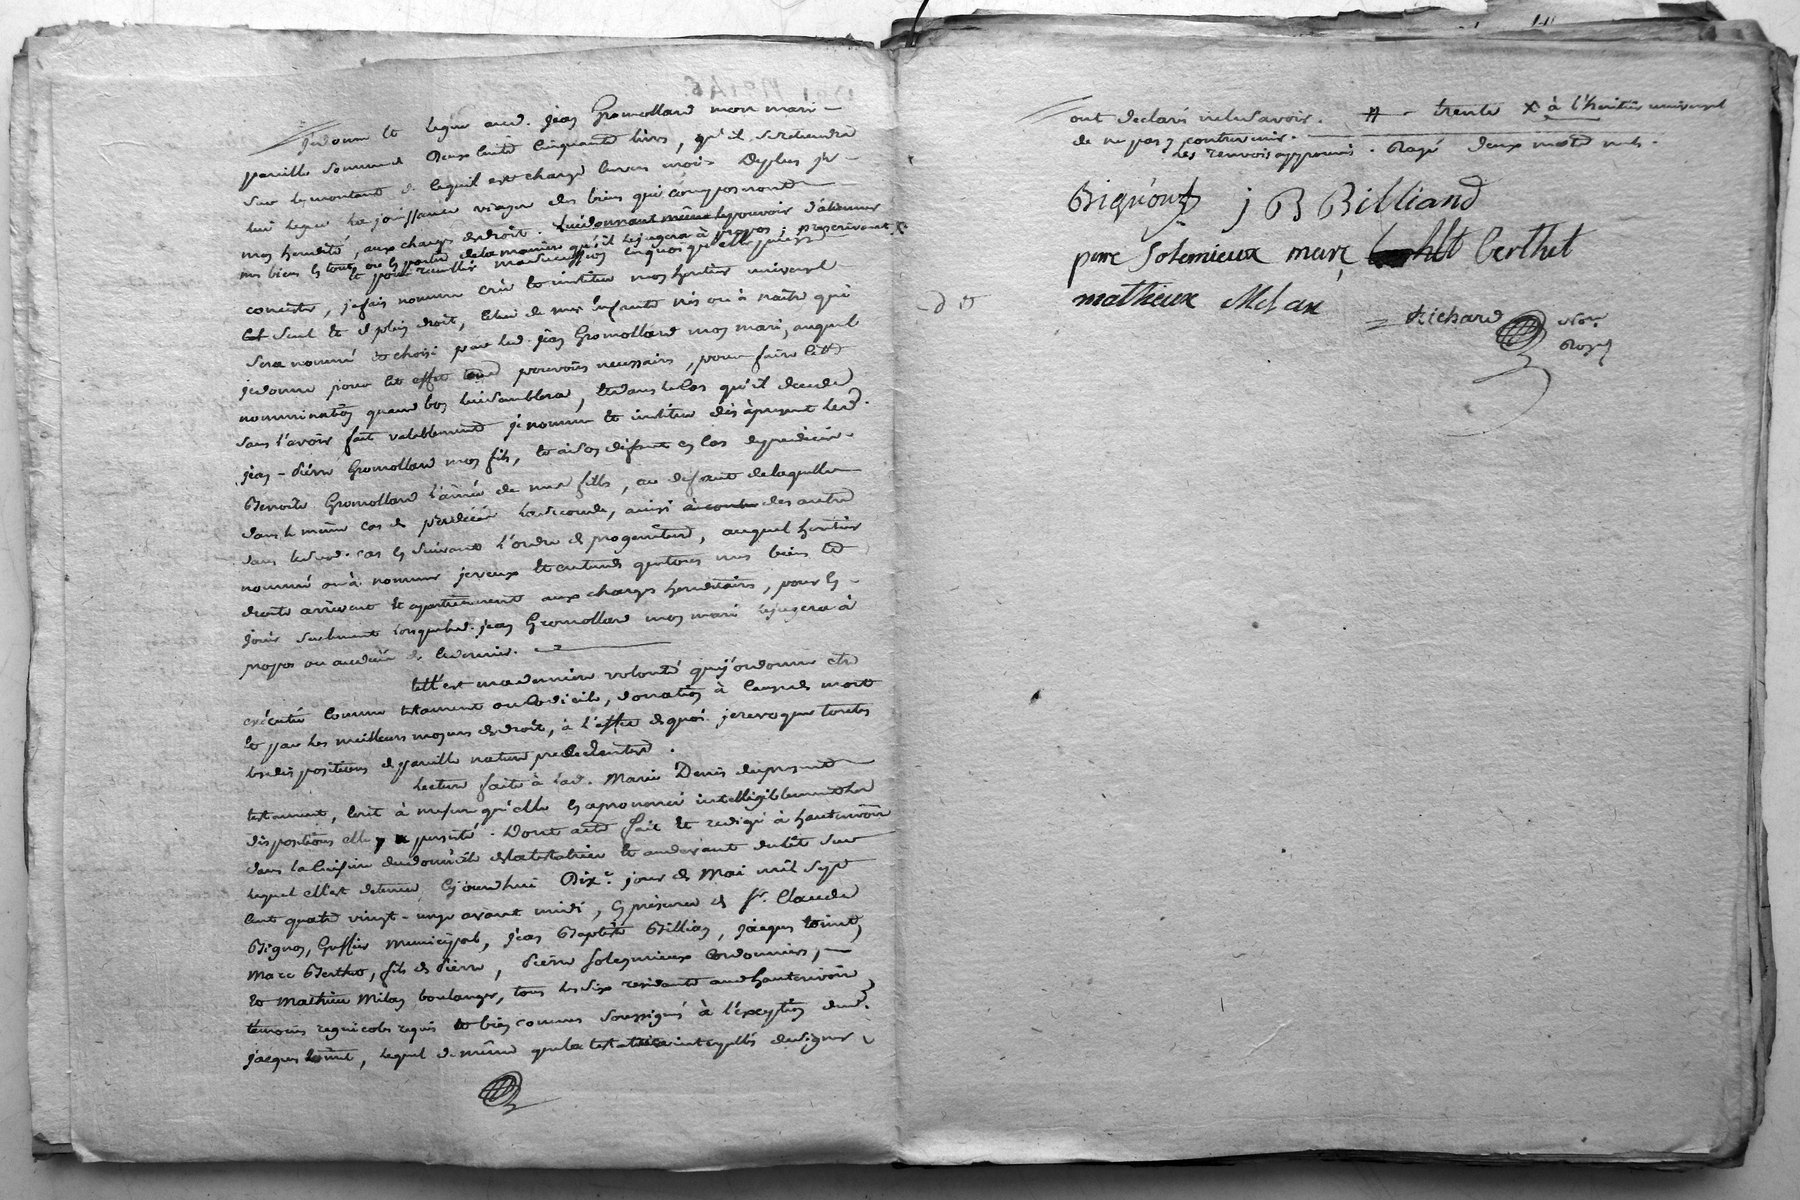 Je donne et legue aud. jean Gromollard mon mari
pareille somme de deux cents cinquante livres, qu'il se retiendra
sur le montant de laquil est chargé envers moi. De plus je
lui legue la jouissance viagere des biens qui composeront
mon heredité, aux charges de droit. lui donnant même le pouvoir d'aliener
mes biens en tout ou en partie de la maniere qu'il le jugera à propos, prescrivant
et pour recueillir ma succession en quoi qu'elle puisse
consister, je fais nomme crée et institue mon heritier universel
seul et de plein droit, celui de mes enfants nés ou à naitre qui
sera nommé et choisi par led. jean Gromollard mon mari, auquel
je donne pour cet effet tous pouvoirs necessaires, pour faire cette
nommination quand bon lui semblera, et dans le cas qu'il decede
sans l'avoir fait valablement je nomme et institue dès àpresent led.
jean-Pierre Gromollard mon fils, et a son defaut en cas de predeces
Benoite Gromollard l'ainée de mes filles, au defaut de laquelle
dans le même cas de predeces la seconde, ainsi des autres
dans led. cas en suivant l'ordre de progeniture, auquel heritier
nommé ou à nommer je veux et entends que tous mes biens et
droits arrivent et apartiennent aux charges hereditaires, pour en
jouir seulement lorsque led. jean Gromollard mon mari le jugera à
propos ou au deces de ce dernier.
telle est ma derniere volonté que j'ordonne etre
exécutée comme testament ou codicile, donation à cause de mort
et par les meilleurs moyens de droit, à l'effet de quoi je revoque toutes
les dispositions de pareille nature precedentes.
Lecture faite à lad. Marie Denis du present
testament, ecrit à mesure qu'elle en a prononcé intelligiblement les
dispositions elle y a persisté. Dont acte fait et redigé à hauterivoire
dans la cuisine du domicile de la testatrice et au devant du lit sur
lequel elle est detenue cejourdhui dix.e jour de Mai mil sept
cent quatre vingt-onze avant midi, en presence de sr. Claude
Bignon, Greffier Municipal, Jean Baptiste Billian, jacques
Marc Berthet, fils de Pierre, Pierre Solegnieux cordonnier,
et Mathieu Milan boulanger, tous les six residants aud hauterivoire
temoins requis et bien connus soussignés à l'exception dud.
jacques, lequel de même que la testatrice interpellés de signer
ont declaré ne le savoir. # - trente X à l'heritier universel
de ne pas y contrevenir.
les renvois approuvés. Rayé deux mots nuls.
Bignon j B Billiand
pierre Solemieux marc Berthet
mathieux Melan
Richard Not.
Royal